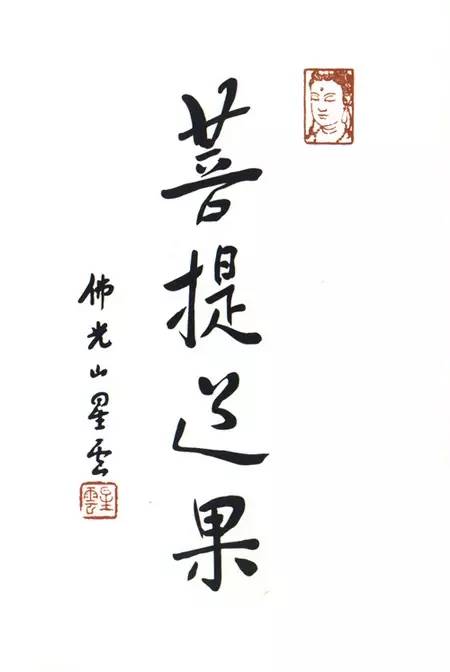 菩提道果
佛光山星雲
星雲